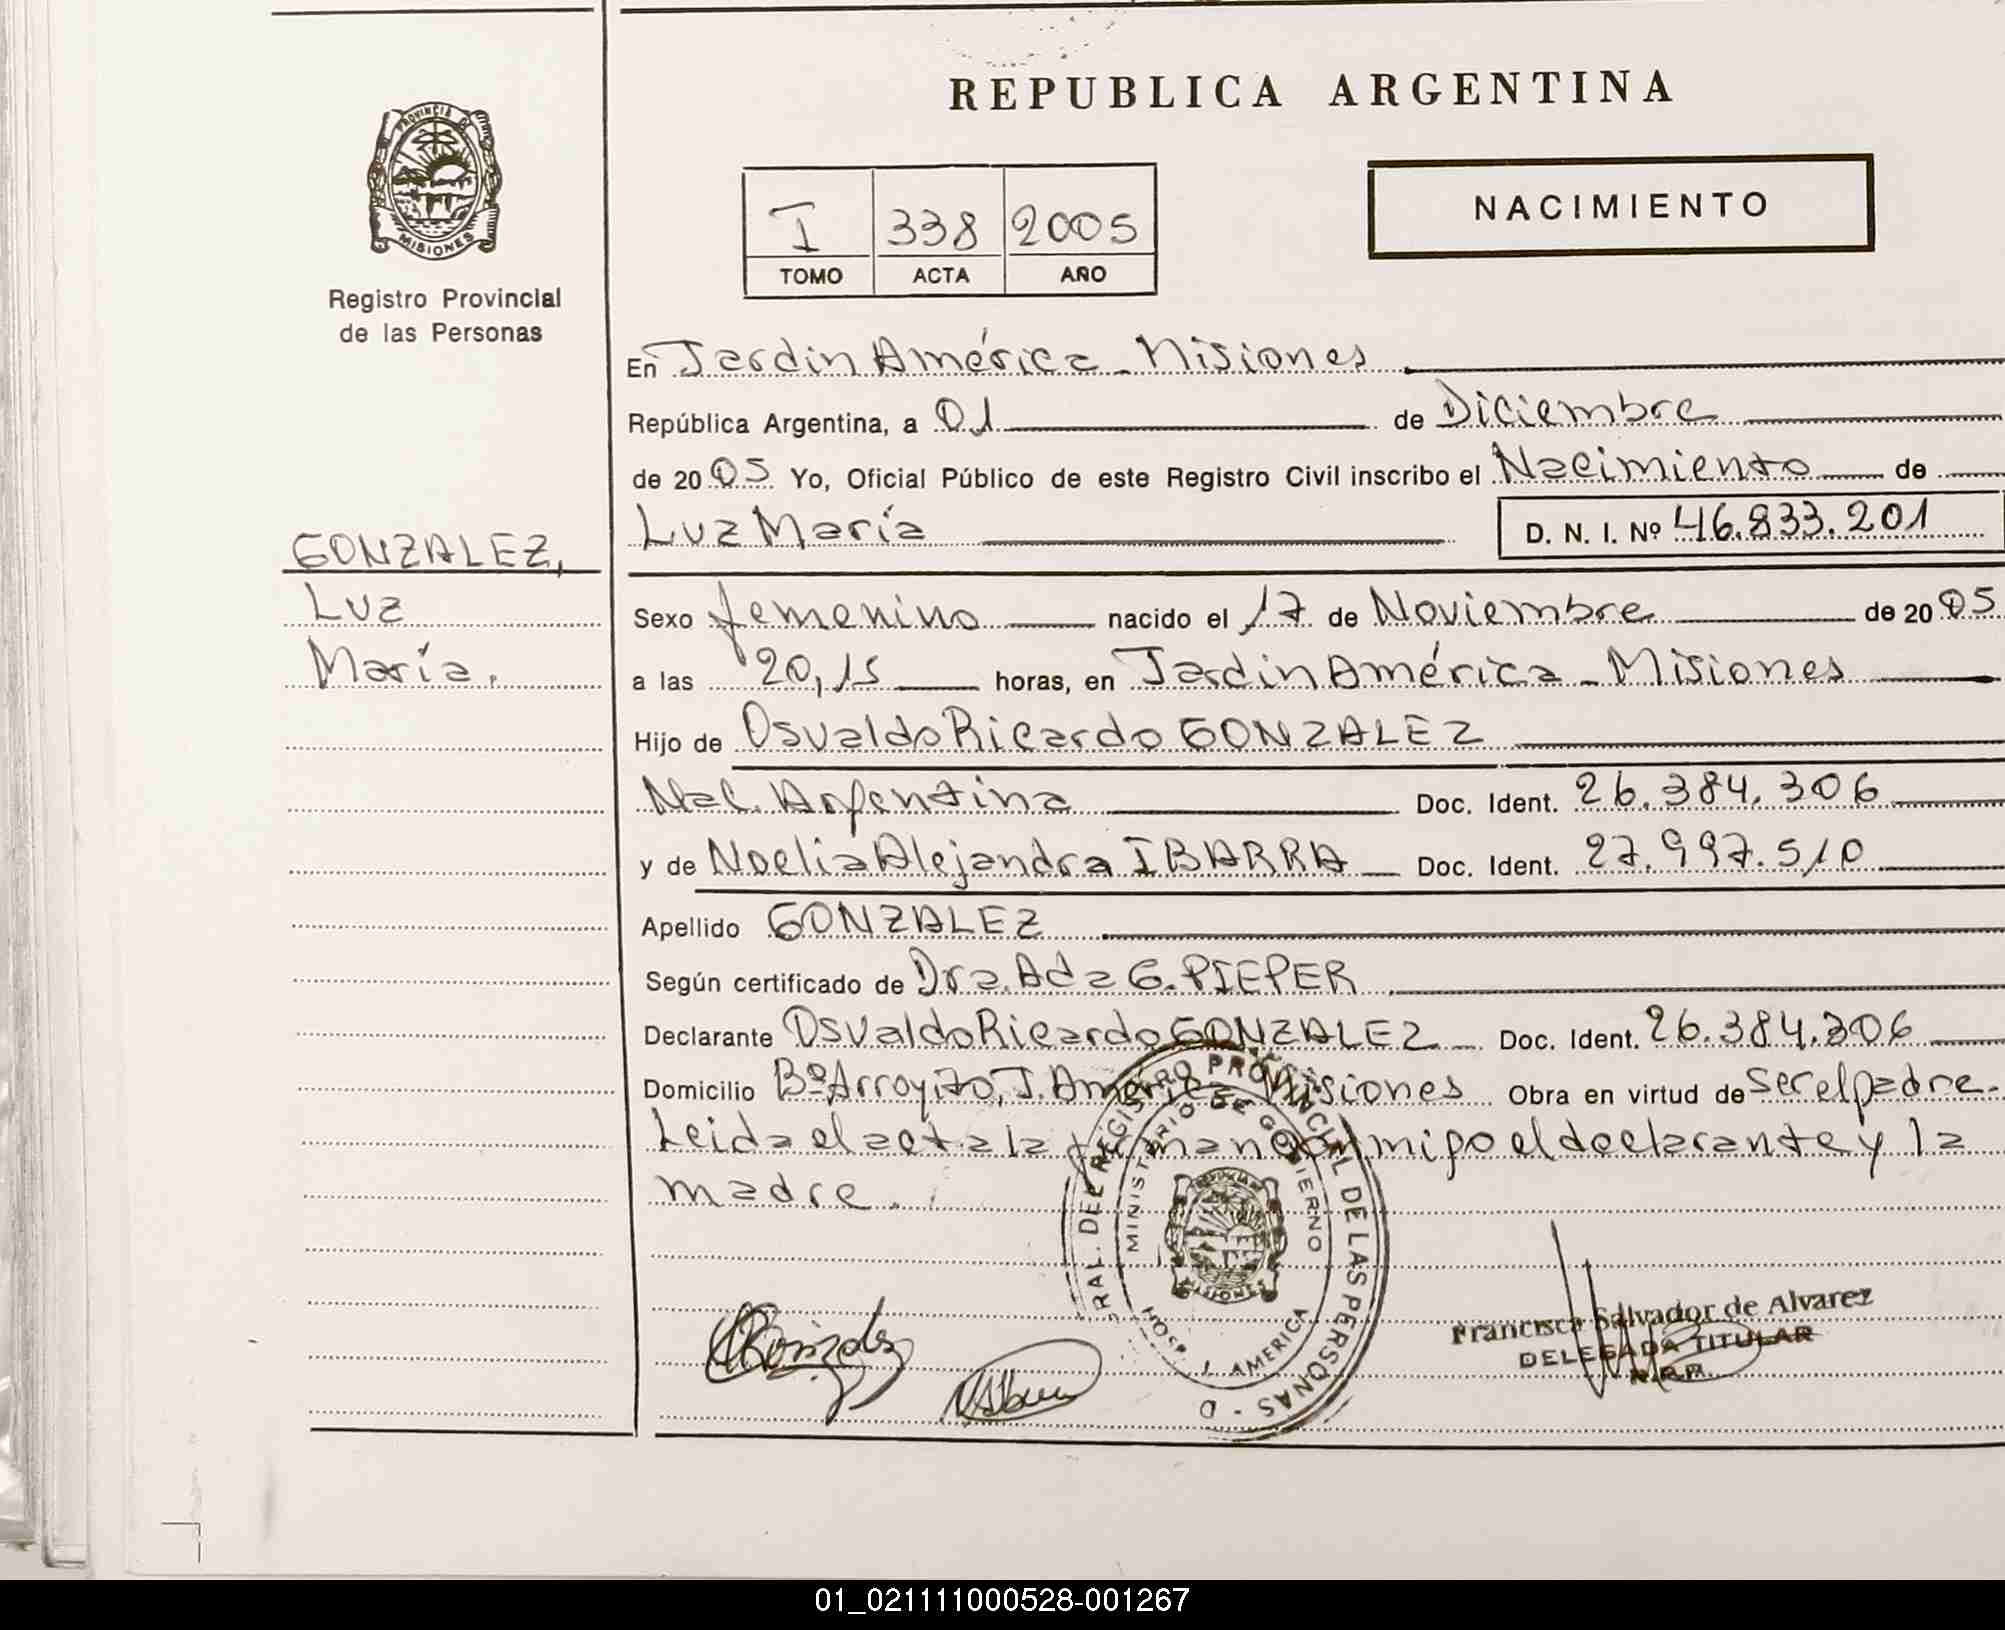 REPUBLICA ARGENTINA
PROVINCIA DE
MISIONES
Registro Provincial
de las Personas
I 338 2005
TOMO ACTA AÑO
NACIMIENTO
En Jardin América - Misiones
República Argentina, a 01 de Diciembre
de 2005 Yo, Oficial Público de este Registro Civil inscribo el Nacimiento de
Luz María D. N. I. Nº 46.833.201
GONZALEZ,
Luz
María.
Sexo femenino nacido el 17 de Noviembre de 2005
a las 20,15 horas, en Jardin América - Misiones
Hijo de Osvaldo Ricardo GONZALEZ
Nac. Argentina Doc. Ident. 26.384.306
y de Noelia Alejandra IBARRA Doc. Ident. 27.997.510
Apellido GONZALEZ
Según certificado de Dra. Ada G. PIEPER
Declarante Osvaldo Ricardo GONZALEZ Doc. Ident. 26.384.306
Domicilio Bº Arroyito, J. América Misiones Obra en virtud de ser el padre.
Leida el acta la firman conmigo el declarante y la
madre.
RAL. DEL REGISTRO PROVINCIAL DE LAS PERSONAS - D
MINISTERIO DE GOBIERNO
HOSP. J. AMERICA
MISIONES
Francisca Salvador de Alvarez
DELEGADA TITULAR
R.P.P.
01_021111000528-001267